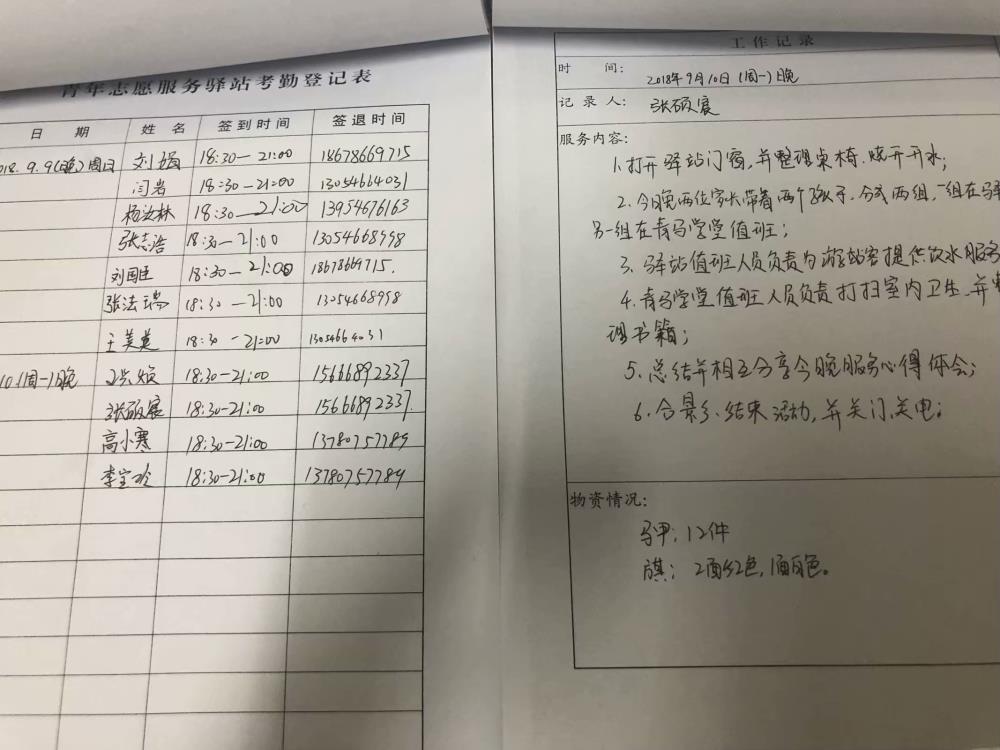 青年志愿服务驿站考勤登记表
日 期 姓 名 签到时间 签退时间
018. 9.9(晚)周日 刘娟 18:30—21:00 18678669715
闫岩 18:30—21:00 13054664031
杨汝林 18:30—21:00 13954676163
张志浩 18:30—21:00 13054668998
刘国臣 18:30—21:00 18678669715.
张法瑞 18:30—21:00 13054668998
王美英 18:30—21:00 13054664031
10.(周一)晚 18:30-21:00 15666892337
张硕宸 18:30-21:00 15666892337.
高小寒 18:30-21:00 13780757789
李宝玲 18:30-21:00 13780757789
工作记录
时 间: 2018年9月10日(周一)晚
记录人: 张硕宸
服务内容:
1.打开驿站门窗,并整理桌椅.烧开开水;
2.今日晚两位家长带着两个孩子,分成两组,一组在驿
另一组在青马学堂值班;
3.驿站值班人员负责为游站客提供饮水服务
4.青马学堂值班人员负责打扫室内卫生,并整
理书籍;
5.总结并相互分享今晚服务心得体会;
6.合影、结束活动,并关门、关电;
物资情况:
马甲:12件
旗:2面红色,1面白色。